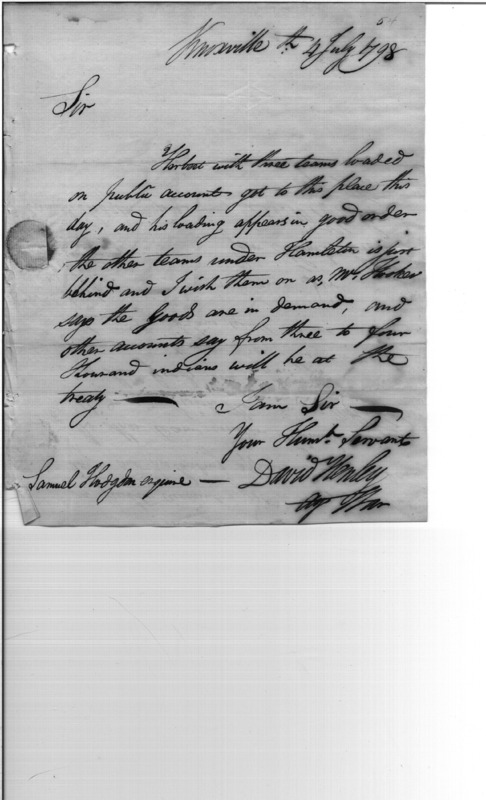 Knoxville th. 4 July 1798
Sir
Harbot with three teams loaded
on public accounts got to this place this
day, and his loading appears in good order
the other teams under Hamilton is just
behind and I wish them on as, Mr. Hooker
says the Goods are in demand, and
other accounts say from three to four
thousand indians will be at the
treaty —
I am Sir —
Your Humb. Servant
Samuel Hodgdon esquire — David Henley
ag War